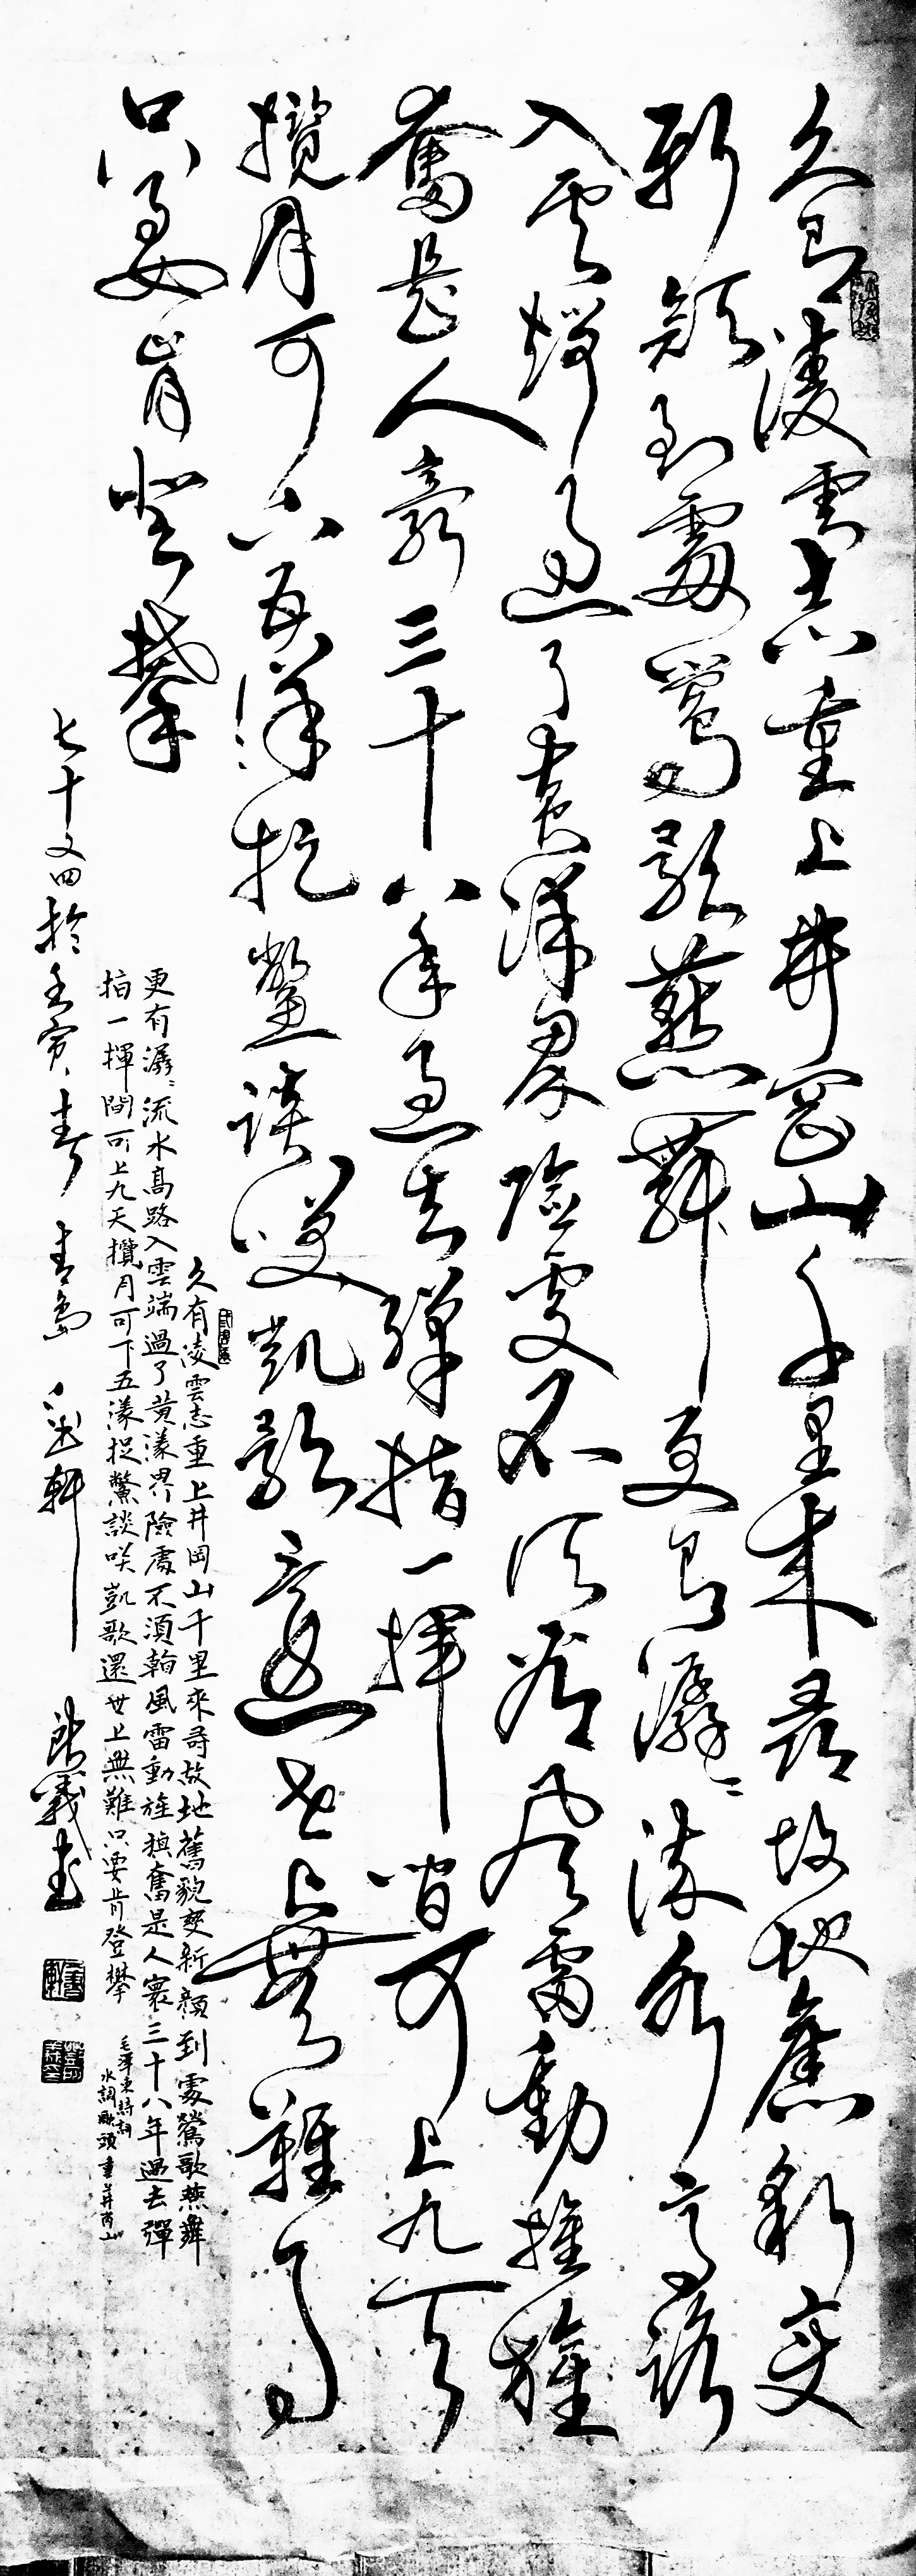 久有凌雲志重上井岡山千里來尋故地舊貌變
新顏到處鶯歌燕舞更有潺〻流水高路
入雲端過了黃洋界險處不須看風雷動旌旗
奮是人寰三十八年過去彈指一揮間可上九天
攬月可下五洋捉鱉談笑凱歌還世上無難事
只要肯登攀
久有凌雲志重上井岡山千里來尋故地舊貌變新顏到處鶯歌燕舞
更有潺〻流水高路入雲端過了黃漾界險處不須翰風雷動旌旗奮是人寰三十八年過去彈
指一揮間可上九天攬月可下五漾捉鱉談笑凱歌還世上無難只要肯登攀
毛澤東詩詞
水調歌頭重井岡山
七十又四於壬寅春青島 軒 義書